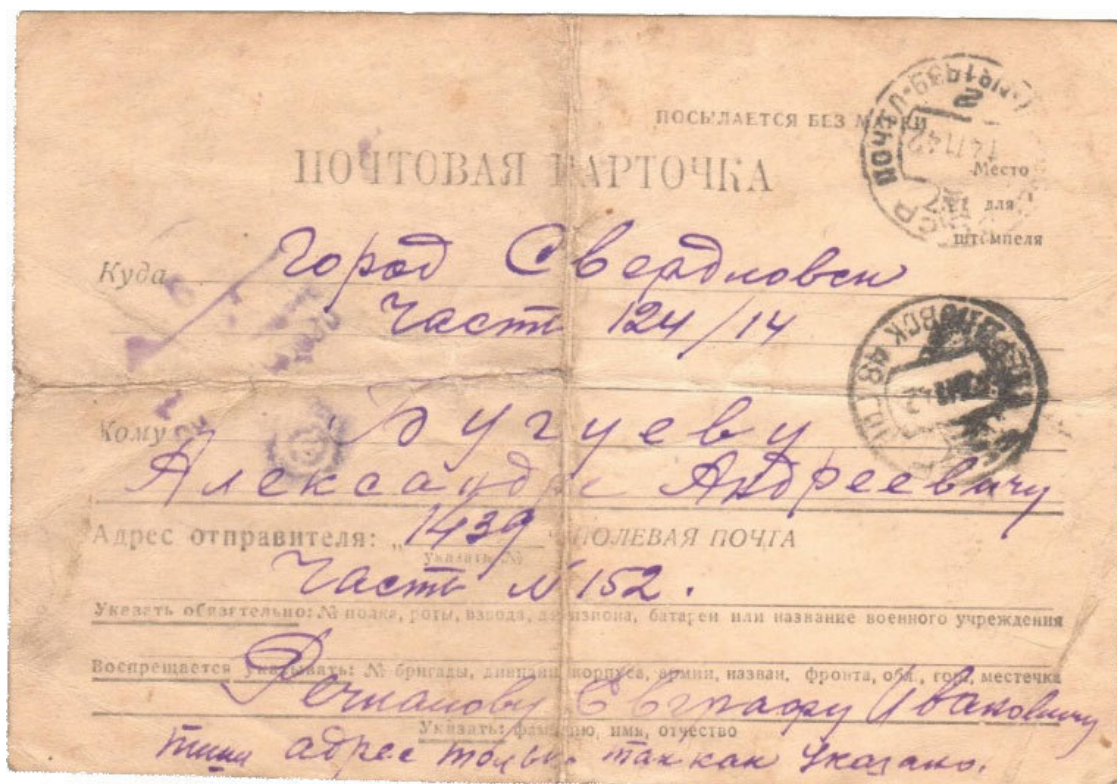 ПОСЫЛАЕТСЯ БЕЗ МАРКИ
ПОЧТОВАЯ КАРТОЧКА
Место
для
штемпеля
Куда Город Свердловск
Часть 124/14
Кому Бугуеву
Александру Андреевичу
Адрес отправителя: „1439“ ПОЛЕВАЯ ПОЧТА
указать №
Часть №152.
Указать обязательно: № полка, роты, взвода, дивизиона, батареи или название военного учреждения
Воспрещается указывать: № бригады, дивизии, корпуса, армии, назван. фронта, обл., гор., местечка
Ивановичу
Указать: фамилию, имя, отчество
пиши адрес только так как указано.